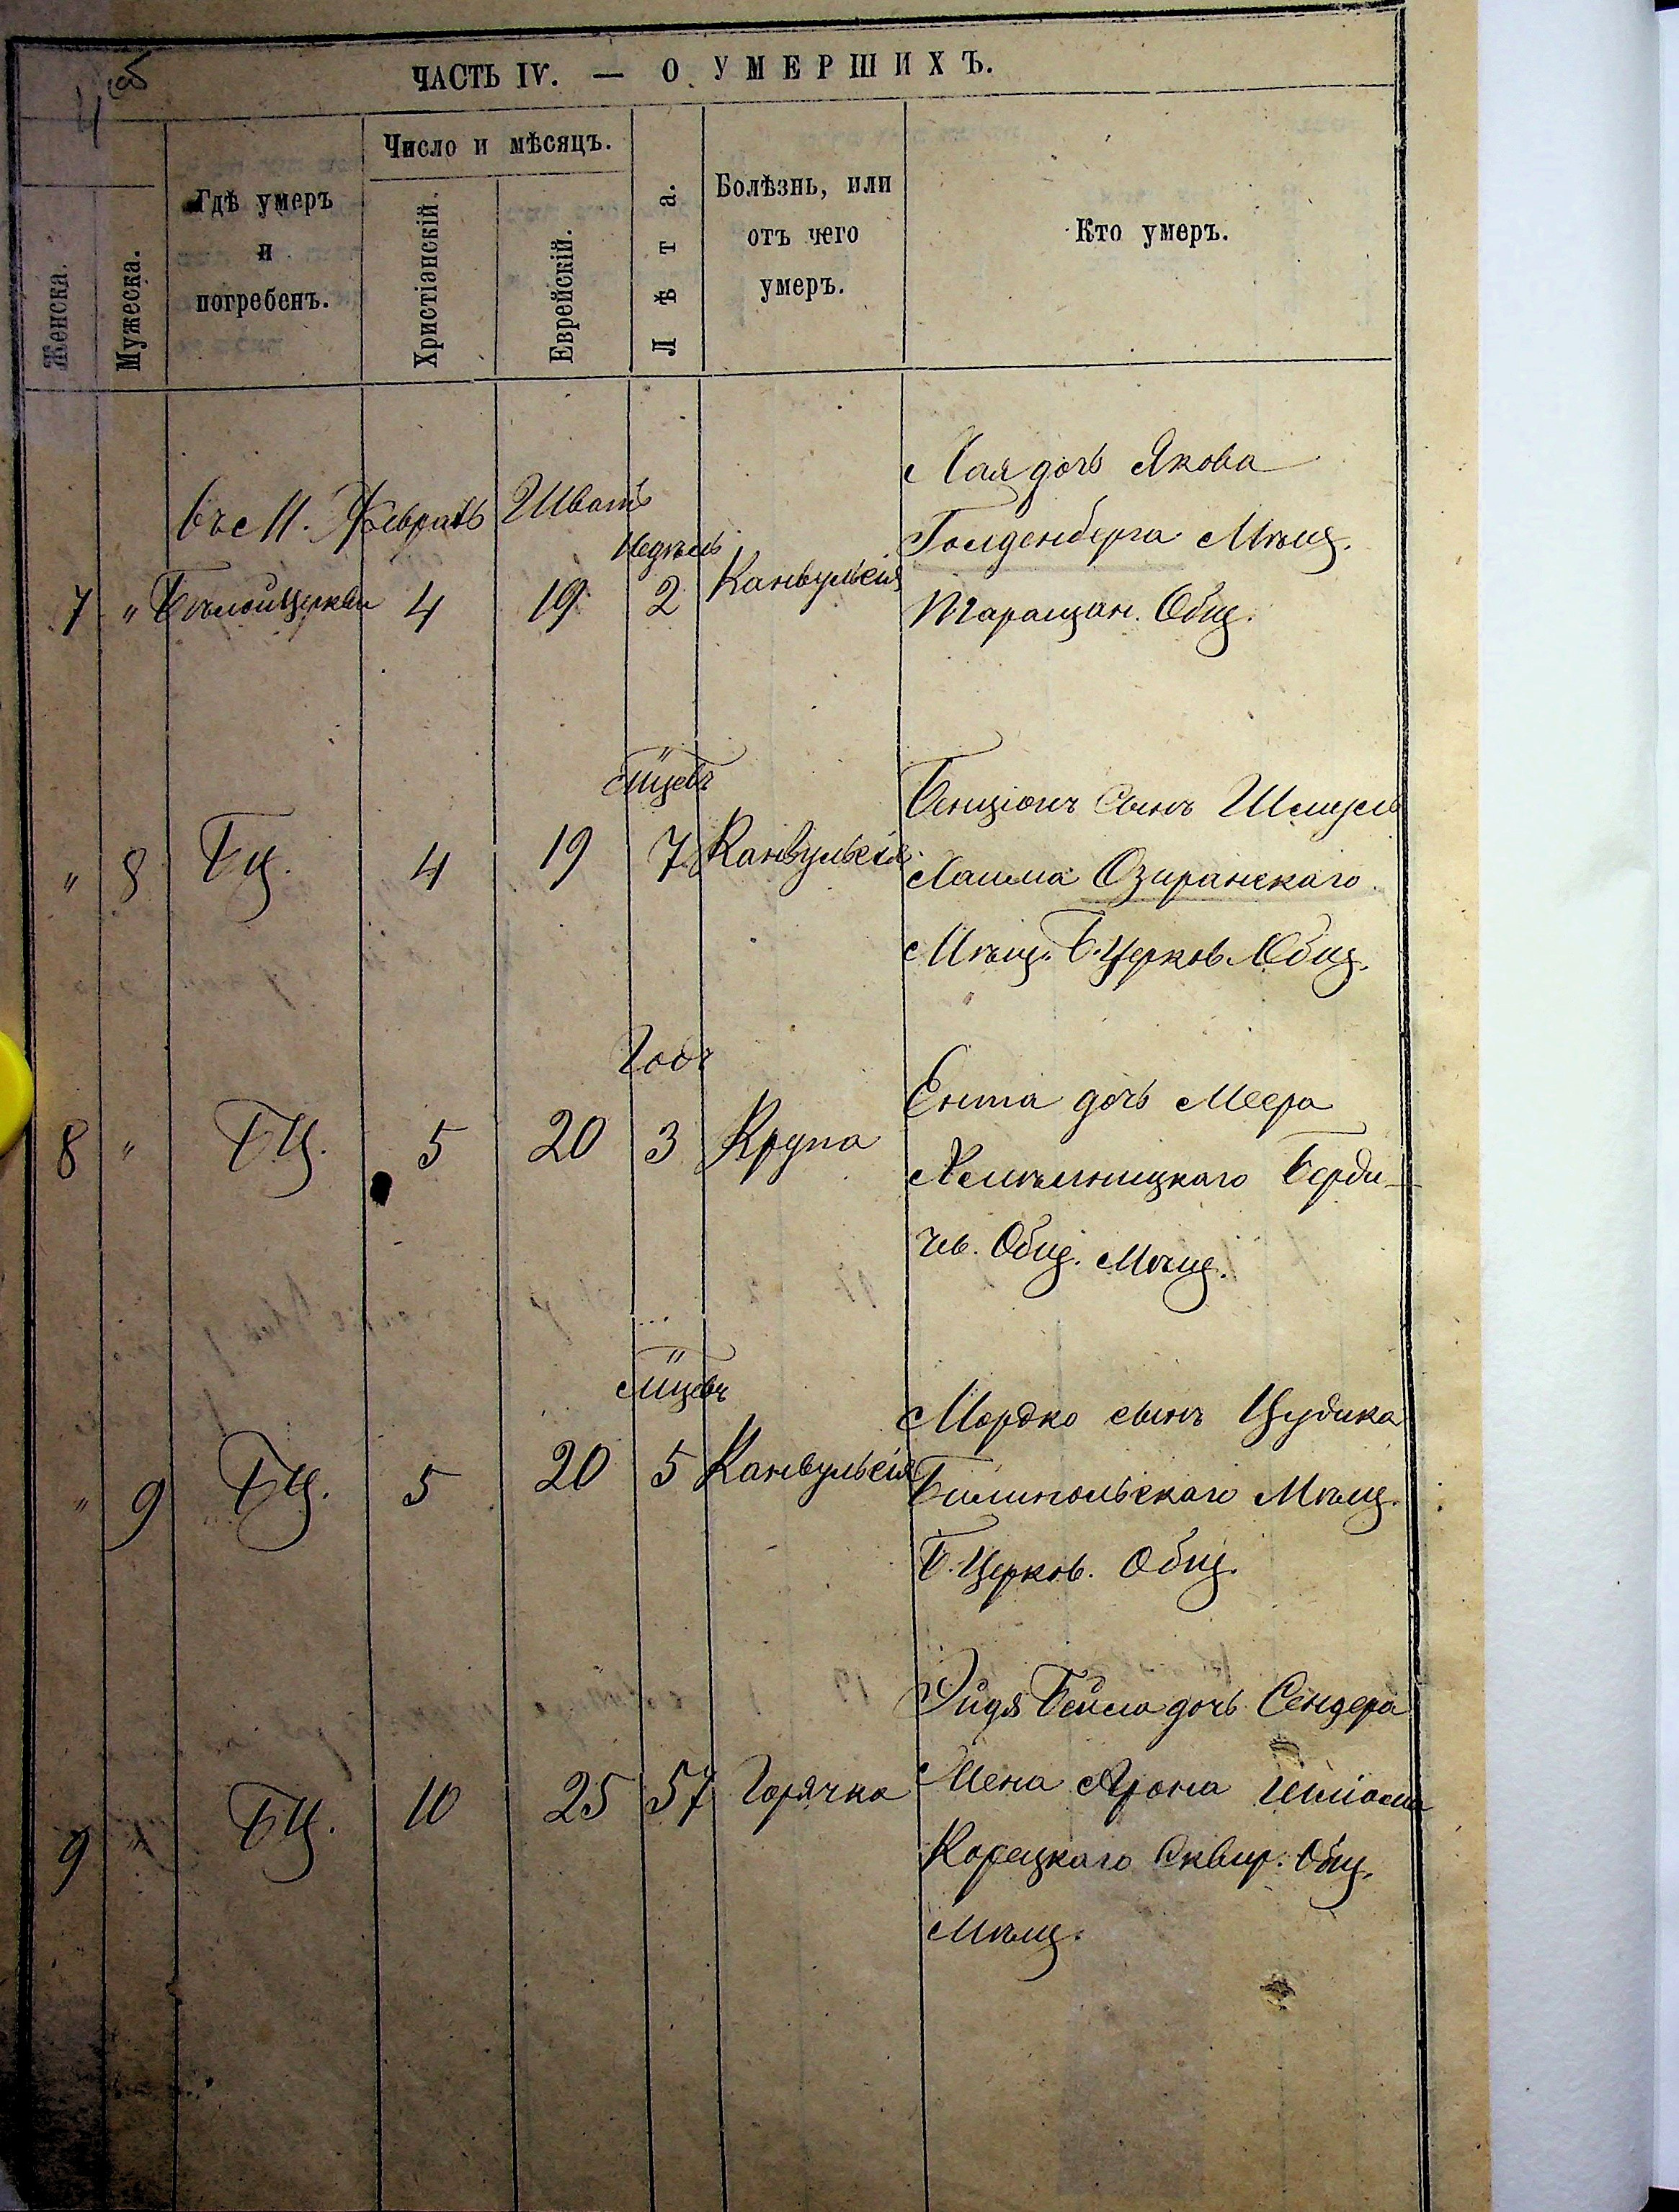 ЧАСТЬ IV. — О УМЕРШИХЪ.
Женска.
Мужеска.
Гдѣ умеръ
и
погребенъ.
Число и мѣсяцъ.
Христіанскій.
Еврейскій.
Лѣта.
Болѣзнь, или
отъ чего
умеръ.
Кто умеръ.
въ М. Февраль Шватъ
Недѣль
7 " Бѣлойцеркви 4 19 2 Канвульсія
Лая дочь Якова
Голденберга Мѣщ.
Таращан. Общ.
Мцевъ
" 8 БЦ. 4 19 7 Канвульсія
Бенціонъ сынъ Шмуль
Озиранскаго
Мѣщ. Б.Церков. Общ.
Годъ
8 " БЦ. 5 20 3 Крупа
Ента дочь Меера
Хмѣльницкаго Берди-
чев. Общ. Мѣщ.
Мцевъ
" 9 БЦ. 5 20 5 Канвульсія
Мордко сынъ Цудика
Билипольскаго Мѣщ.
Б.Церков. Общ.
9 " БЦ. 10 25 57 Горячка
Бейла дочь Сендера
Жена Арона
Корецкаго Сквир. Общ.
Мѣщ.